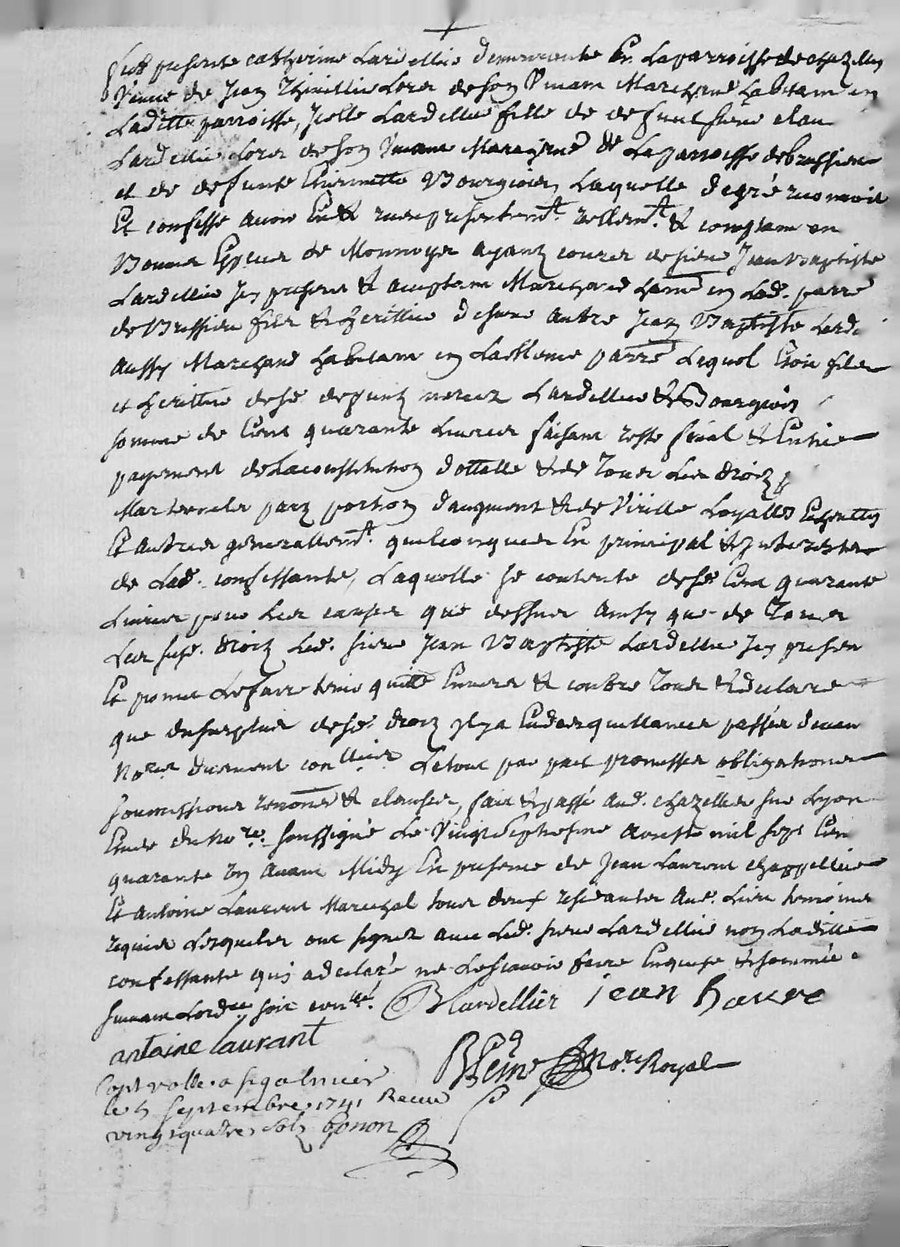 fut presente catherine Lardellier demeurante En Laparroisse de chazelles
Veuve de Jean Thivillier Lors de son Vivant Marchand habitant en
Laditte parroisse, Jcelle Lardellier fille de deffunt sieur
Lardellier Lors de son Vivant Marchand de Laparroisse debrussieu
et de deffunte Bourgeois Laquelle degré reconnoit
Et confesse avoir Eu & reçu presentemt. reellemt. & comptant en
Bonnes Especes de Monnoyes ayant cours de sieur Jean Baptiste
Lardellier Jcy present & acceptant Marchand habt en Lad. parre
de Brussieu fils & heritier de sieur autre Jean Baptiste Lard
aussy Marchand habitant en La meme parre Lequel Etoit fils
et heritier desd defunts Lardellier & Bourgeois
somme de Cent quarante Livres faisant reste final & Entier
payement de La constitution dottalle & de Tous Les droits
Maternels part portion d'augment & de Virille Loyalles Echuttes
Et autres generallemt. quelconques En principal & Jnterests
de Lad. confessante, Laquelle se contente desd Cent quarante
Livres pour Les causes que dessus ainsy que de Tous
Les susd. droits Led. sieur Jean Baptiste Lardellier Jcy present
Et promet Le faire tenir quitte Envers & contre Tous & declare
que du surplus desd droits Jl y a Eu des quittances passées devant
Nores duement conllées Le tout par pact promesses obligations
soumissions renons & clauses, fait & passé aud. chazelles sur Lyon
Etude du Nore. soussigné Le Vingt Septiesme aoust mil sept Cent
quarante Un avant Midy En presence de Jean Laurent chappellier
Et Antoine Laurent Marechal tous deux residants aud. Lieu temoins
requis Lesquels ont signez avec Led. sieur Lardellier non Laditte
confessante qui a declaré ne Le scavoir faire Enquise & sommée
suivant Lordce soit conllé. Lardellier jean
antoine laurant
nore Royal
Controllé a St galmier
le 5 septembre 1741 Receu
vingt quatre sols